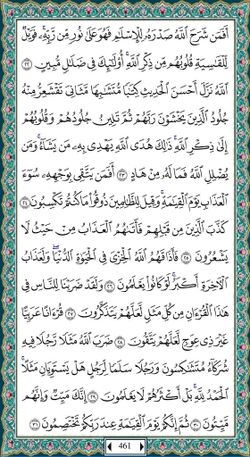 أَفَمَن شَرَحَ ٱللَّهُ صَدْرَهُۥ لِلْإِسْلَٰمِ فَهُوَ عَلَىٰ نُورٍ مِّن رَّبِّهِۦ ۚ فَوَيْلٌ
لِّلْقَٰسِيَةِ قُلُوبُهُم مِّن ذِكْرِ ٱللَّهِ ۚ أُو۟لَٰٓئِكَ فِى ضَلَٰلٍ مُّبِينٍ ٢٢
ٱللَّهُ نَزَّلَ أَحْسَنَ ٱلْحَدِيثِ كِتَٰبًا مُّتَشَٰبِهًا مَّثَانِىَ تَقْشَعِرُّ مِنْهُ
جُلُودُ ٱلَّذِينَ يَخْشَوْنَ رَبَّهُمْ ثُمَّ تَلِينُ جُلُودُهُمْ وَقُلُوبُهُمْ
إِلَىٰ ذِكْرِ ٱللَّهِ ۚ ذَٰلِكَ هُدَى ٱللَّهِ يَهْدِى بِهِۦ مَن يَشَآءُ ۚ وَمَن
يُضْلِلِ ٱللَّهُ فَمَا لَهُۥ مِنْ هَادٍ ٢٣ أَفَمَن يَتَّقِى بِوَجْهِهِۦ سُوٓءَ
ٱلْعَذَابِ يَوْمَ ٱلْقِيَٰمَةِ ۚ وَقِيلَ لِلظَّٰلِمِينَ ذُوقُوا۟ مَا كُنتُمْ تَكْسِبُونَ ٢٤
كَذَّبَ ٱلَّذِينَ مِن قَبْلِهِمْ فَأَتَىٰهُمُ ٱلْعَذَابُ مِنْ حَيْثُ لَا
يَشْعُرُونَ ٢٥ فَأَذَاقَهُمُ ٱللَّهُ ٱلْخِزْىَ فِى ٱلْحَيَوٰةِ ٱلدُّنْيَا ۖ وَلَعَذَابُ
ٱلْءَاخِرَةِ أَكْبَرُ ۚ لَوْ كَانُوا۟ يَعْلَمُونَ ٢٦ وَلَقَدْ ضَرَبْنَا لِلنَّاسِ فِى
هَٰذَا ٱلْقُرْءَانِ مِن كُلِّ مَثَلٍ لَّعَلَّهُمْ يَتَذَكَّرُونَ ٢٧ قُرْءَانًا عَرَبِيًّا
غَيْرَ ذِى عِوَجٍ لَّعَلَّهُمْ يَتَّقُونَ ٢٨ ضَرَبَ ٱللَّهُ مَثَلًا رَّجُلًا فِيهِ
شُرَكَآءُ مُتَشَٰكِسُونَ وَرَجُلًا سَلَمًا لِّرَجُلٍ هَلْ يَسْتَوِيَانِ مَثَلًا ۚ
ٱلْحَمْدُ لِلَّهِ ۚ بَلْ أَكْثَرُهُمْ لَا يَعْلَمُونَ ٢٩ إِنَّكَ مَيِّتٌ وَإِنَّهُم
مَّيِّتُونَ ٣٠ ثُمَّ إِنَّكُمْ يَوْمَ ٱلْقِيَٰمَةِ عِندَ رَبِّكُمْ تَخْتَصِمُونَ ٣١
461